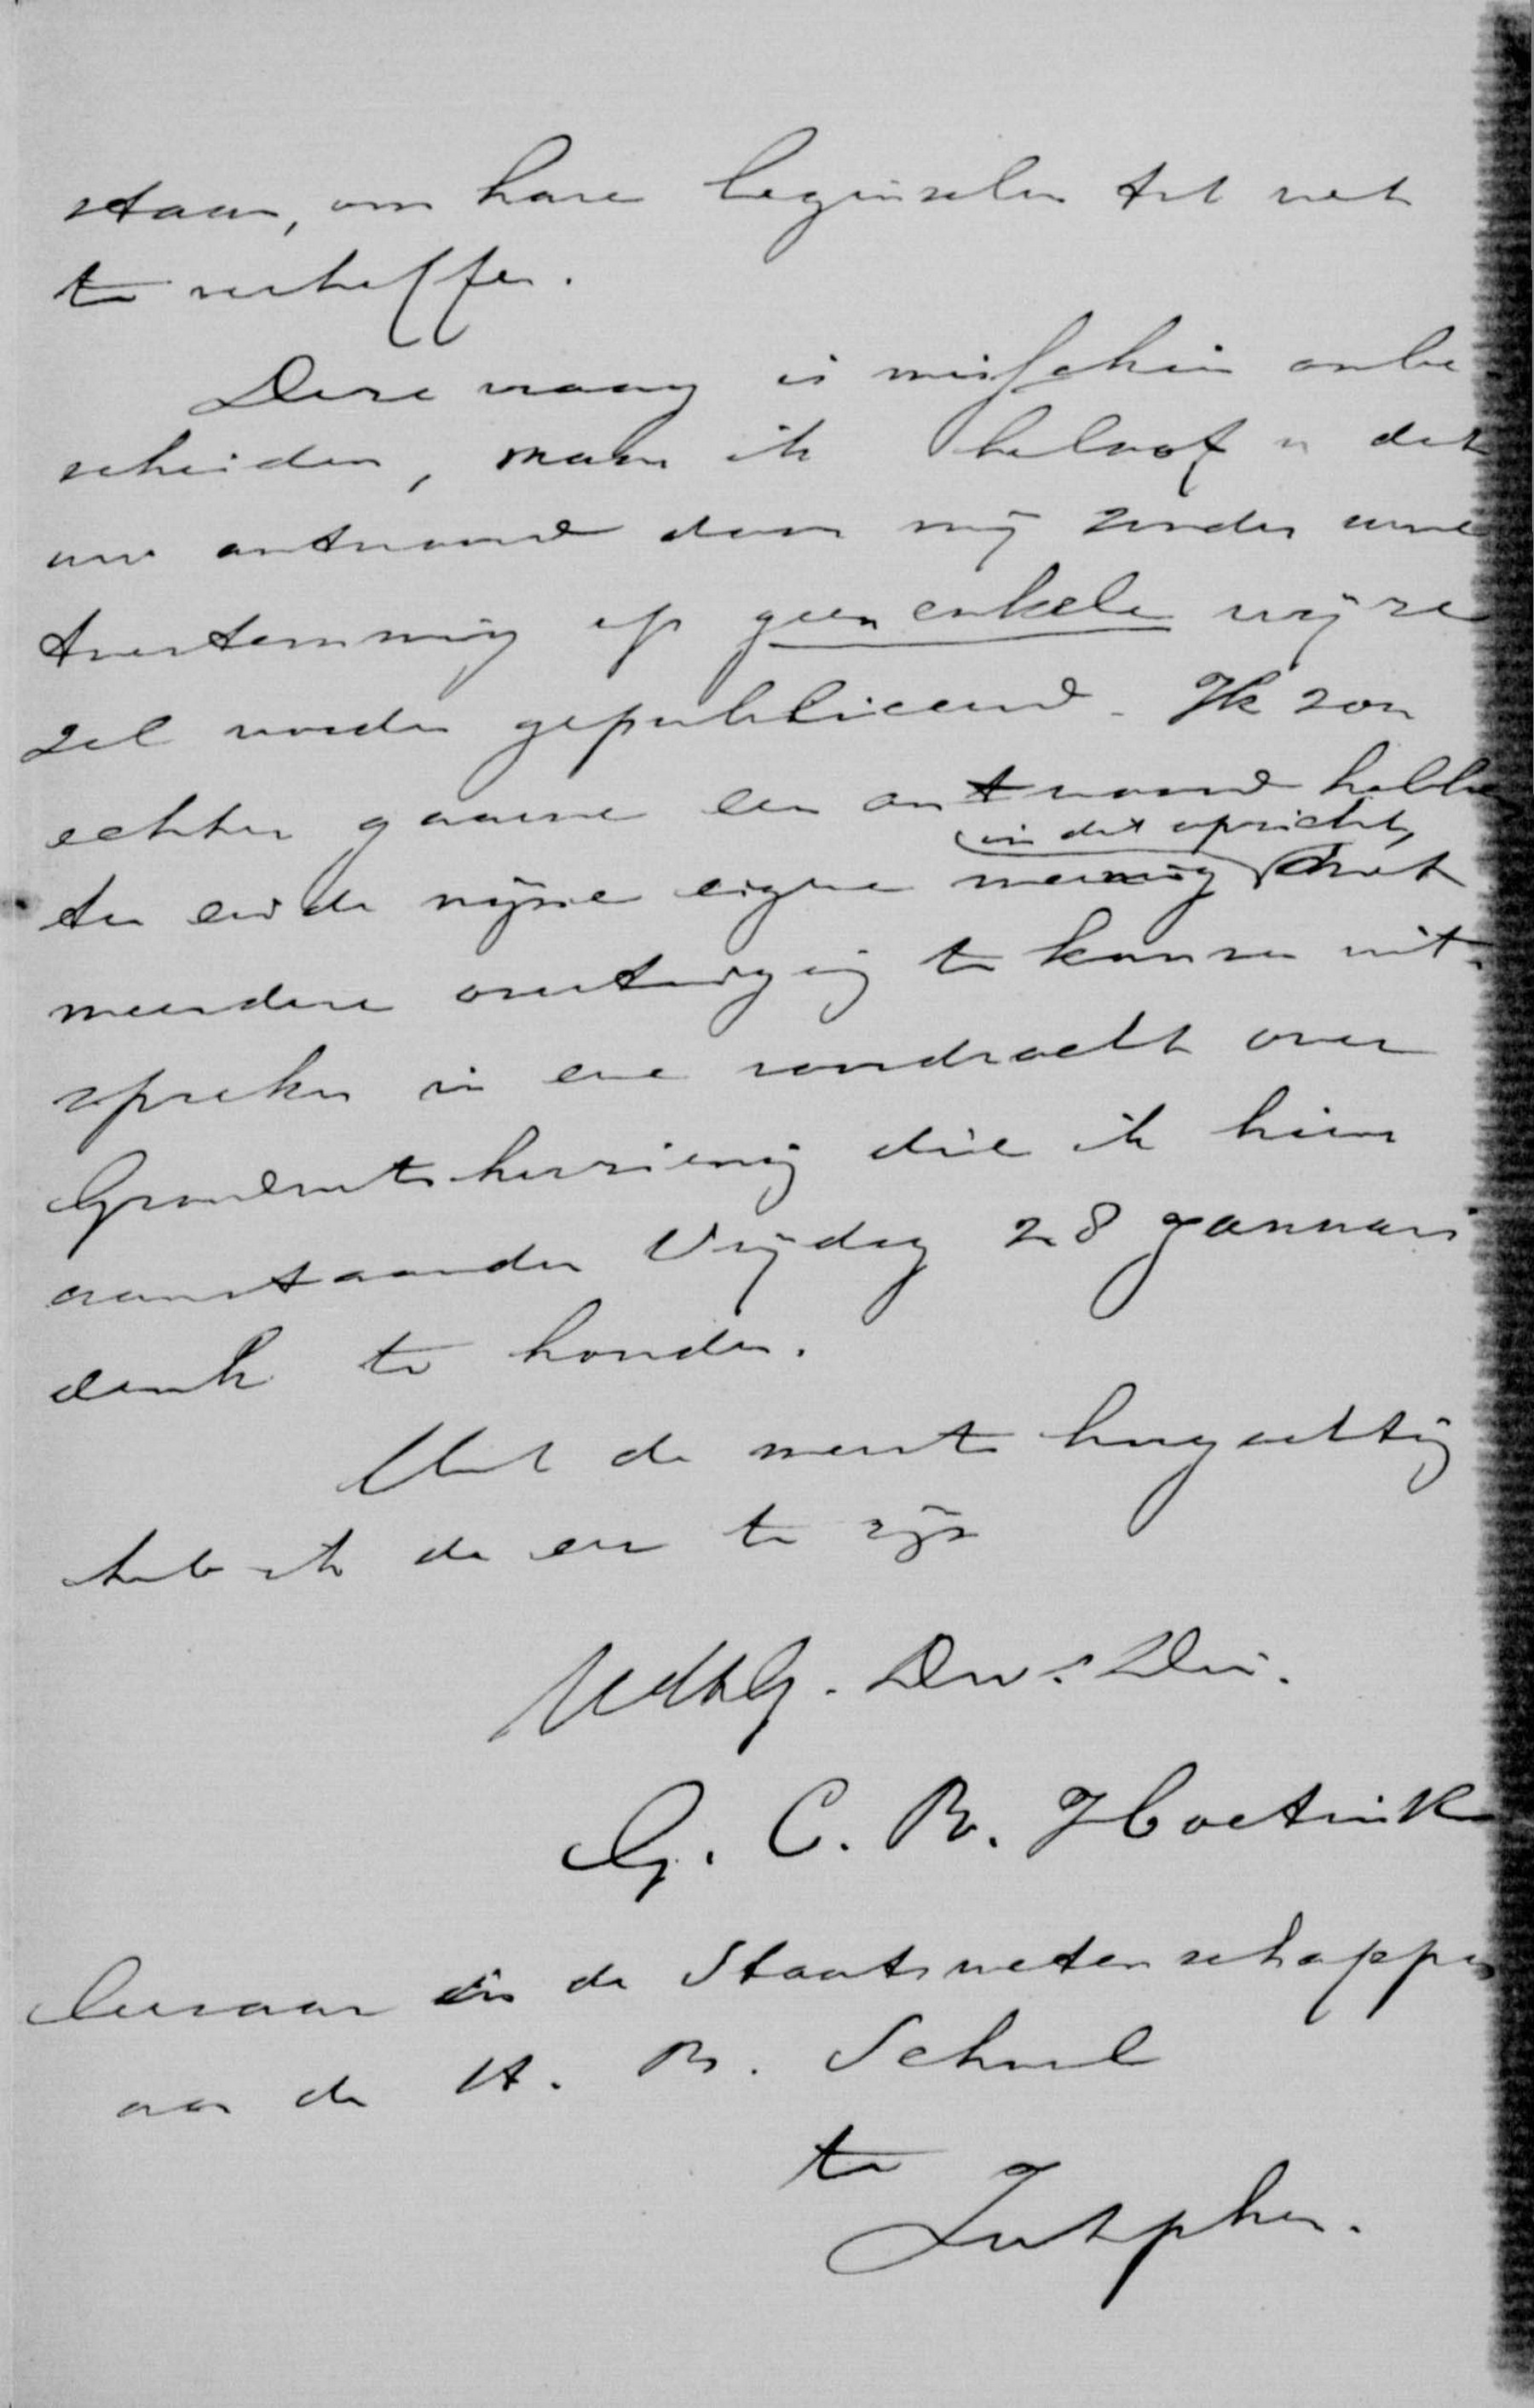 staan, om hare beginselen tot wet
te verheffen.
Deze vraag is misschien onbe-
scheiden, maar ik beloof u dat
uw antwoord door mij zonder uwe
toestemming op geen enkele wijze
zal worden gepubliceerd. Ik zou
echter gaarne een antwoord hebben
in dat opzicht,
ten einde mijne eigene meening met
meerdere overtuiging te kunnen uit-
spreken in eene voordracht over
Grondwetsherziening die ik hier
aanstaanden Vrijdag 28 Januari
denk te houden.
Met de meeste hoogachting
heb ik de eer te zijn
UEdG. Dw. Dr.
G. C. B. Hoetink
leeraar in de Staatswetenschappen
aan de H. B. School
te
Zutphen.